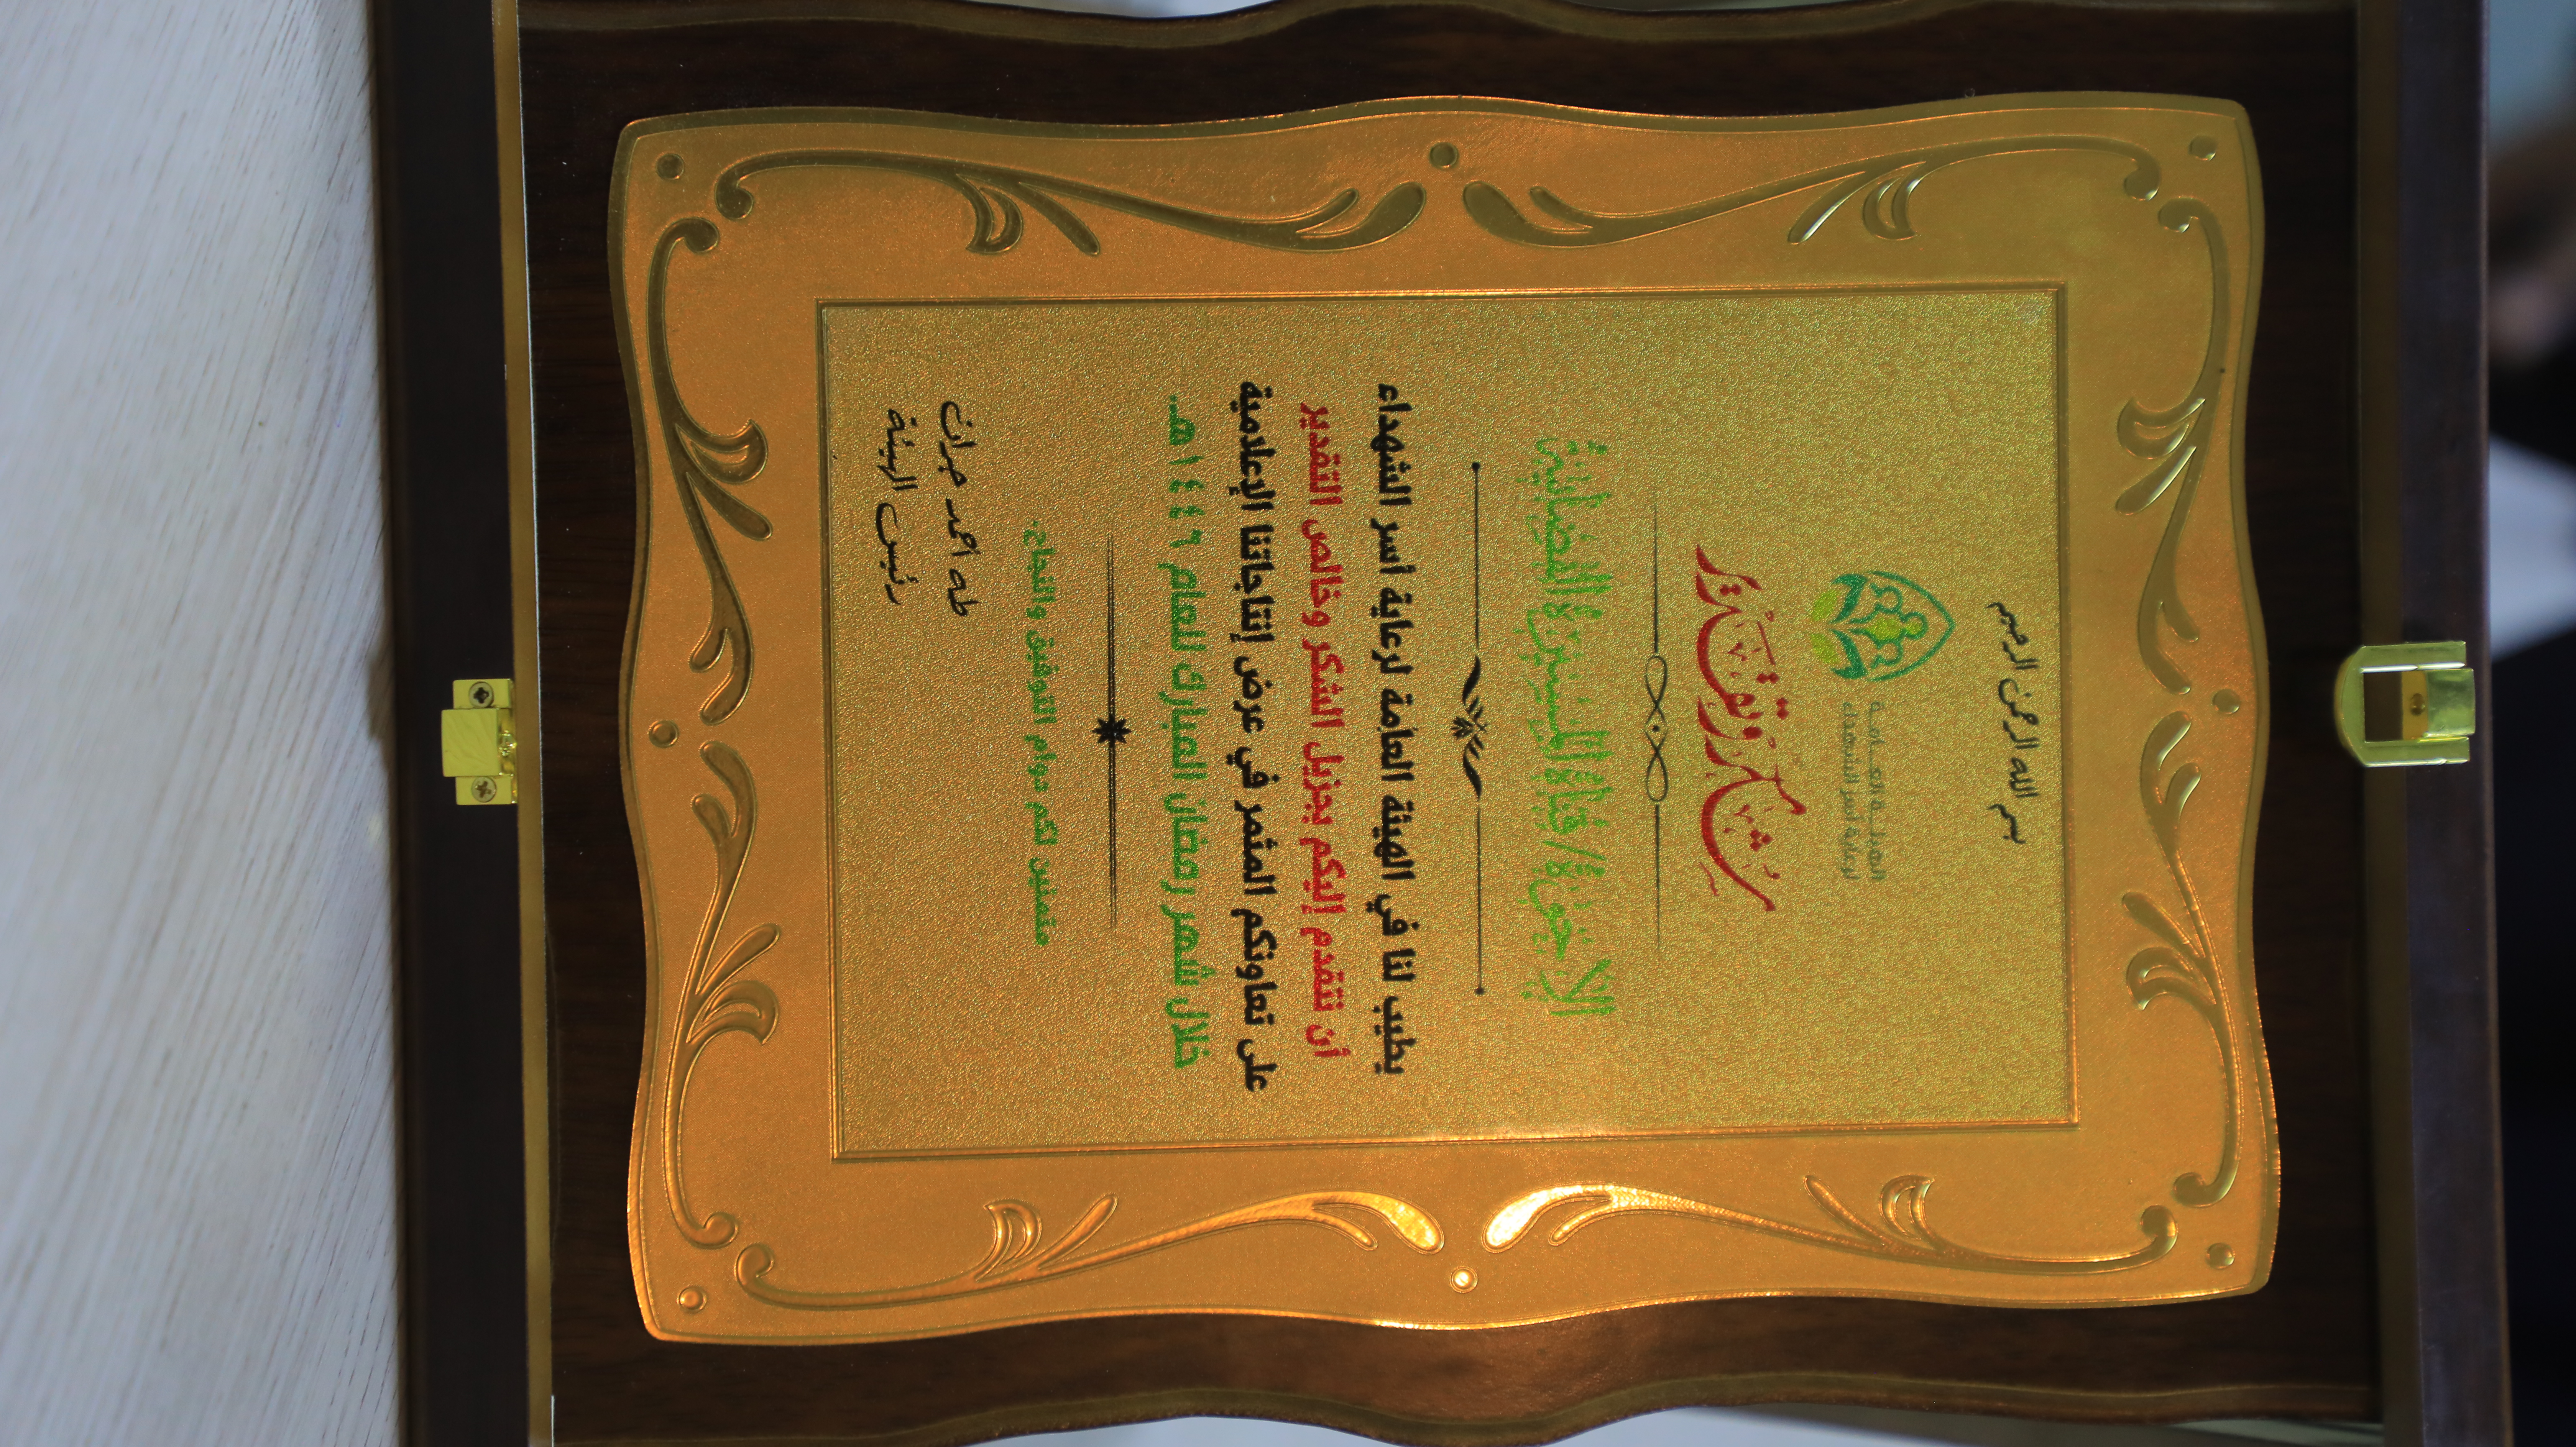 بسم الله الرحمن الرحيم
الهيئة العامة
لرعاية أسر الشهداء
شكر وتقدير
الإخوة/ قناة المسيرة الفضائية
يطيب لنا في الهيئة العامة لرعاية أسر الشهداء
أن نتقدم إليكم بجزيل الشكر وخالص التقدير
على تعاونكم المثمر في عرض إنتاجاتنا الإعلامية
خلال شهر رمضان المبارك للعام ١٤٤٦هـ
متمنين لكم دوام التوفيق والنجاح.
طه احمد جران
رئيس الهيئة